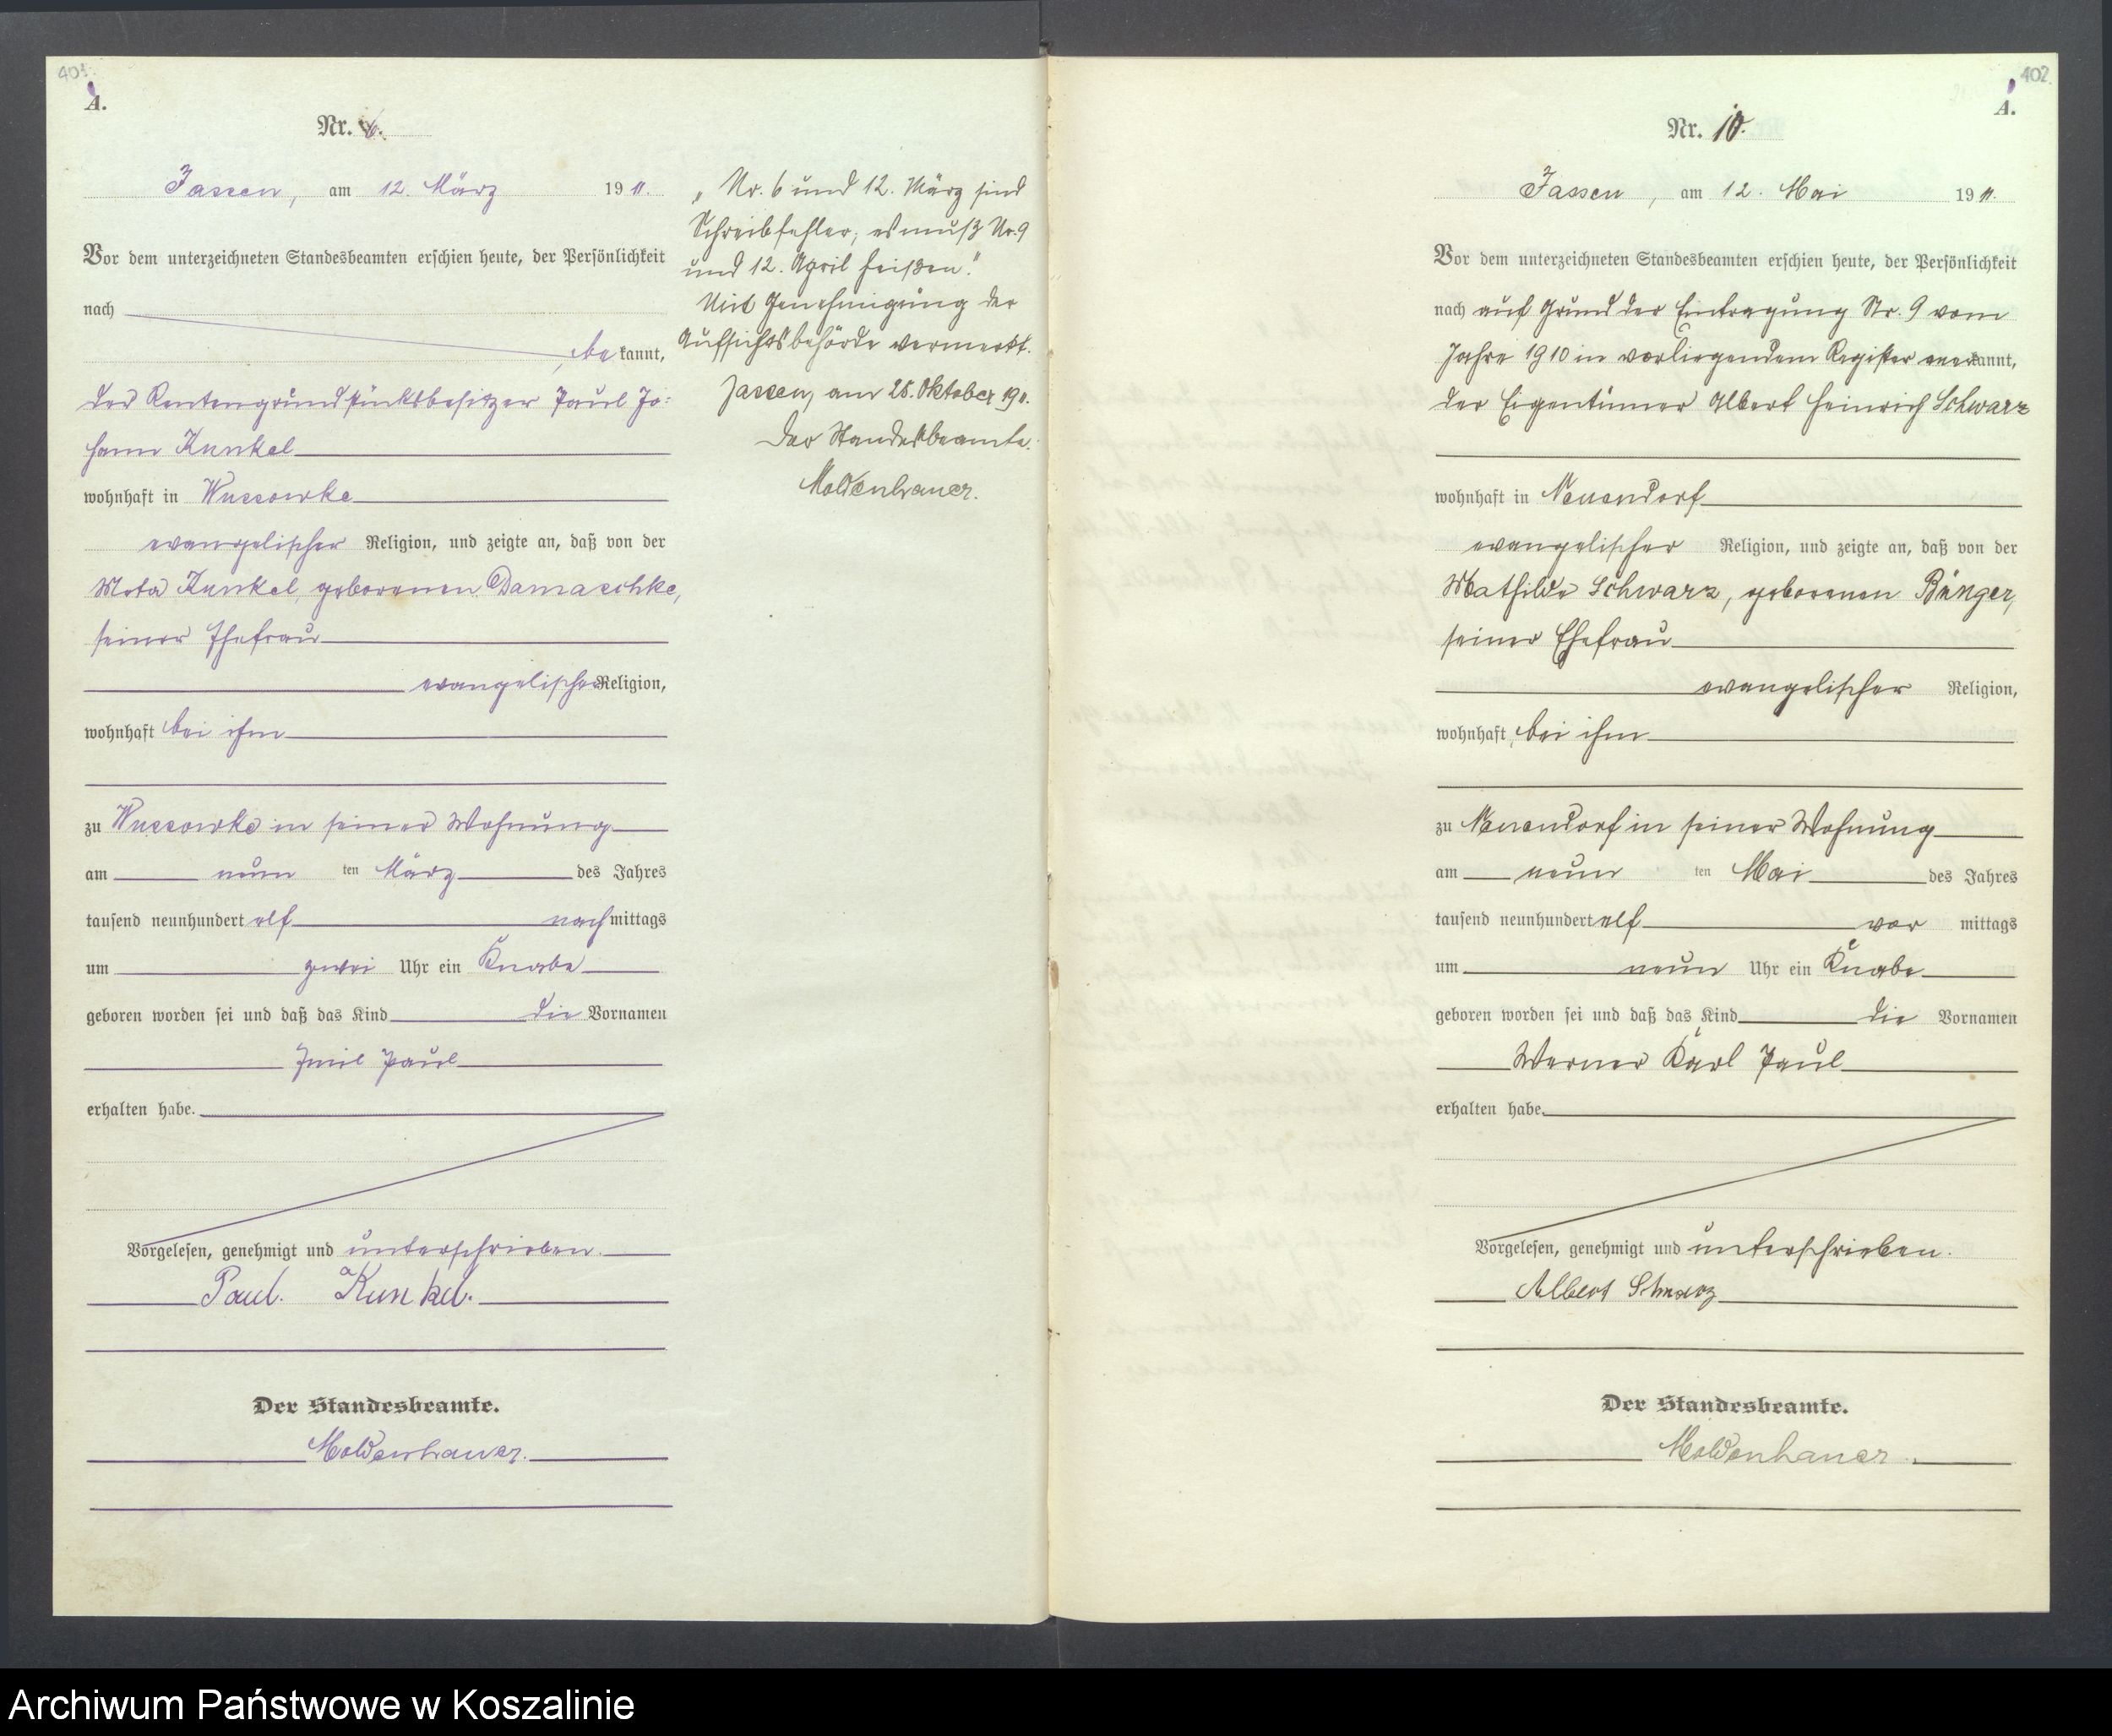 401.
A.
Nr. 6.
Jassen, am 12. März 1911.
Vor dem unterzeichneten Standesbeamten erschien heute, der Persönlichkeit
nach
bekannt,
der Rentengrundstücksbesitzer Paul Jo-
hann Kunkel
wohnhaft in Wussowke
evangelischer Religion, und zeigte an, daß von der
Meta Kunkel, geborenen Damaschke,
seiner Ehefrau
evangelischer Religion,
wohnhaft bei ihm
zu Wussowke in seiner Wohnung
am neun ten März des Jahres
tausend neunhundert elf nachmittags
um zwei Uhr ein Knabe
geboren worden sei und daß das Kind die Vornamen
Emil Paul
erhalten habe.
Vorgelesen, genehmigt und unterschrieben.
Paul. Kunkel.
Der Standesbeamte.
Moldenhauer.
„Nr. 6 und 12. März sind
Schreibfehler; es muß Nr. 9
und 12. April heißen."
Mit Genehmigung der
Aufsichtsbehörde vermerkt.
Jassen, am 28. Oktober 1911.
Der Standesbeamte.
Moldenhauer.
402.
A.
Nr. 10.
Jassen, am 12. Mai 1911.
Vor dem unterzeichneten Standesbeamten erschien heute, der Persönlichkeit
nach auf Grund der Eintragung Nr. 9 vom
Jahre 1910 in vorliegendem Register anerkannt,
der Eigentümer Albert Heinrich Schwarz
wohnhaft in Neuendorf
evangelischer Religion, und zeigte an, daß von der
Mathilde Schwarz, geborenen Bünger,
seiner Ehefrau
evangelischer Religion,
wohnhaft bei ihm
zu Neuendorf in seiner Wohnung
am neun ten Mai des Jahres
tausend neunhundert elf vor mittags
um neun Uhr ein Knabe
geboren worden sei und daß das Kind die Vornamen
Werner Karl Paul
erhalten habe.
Vorgelesen, genehmigt und unterschrieben.
Albert Schwarz
Der Standesbeamte.
Moldenhauer.
Archiwum Państwowe w Koszalinie